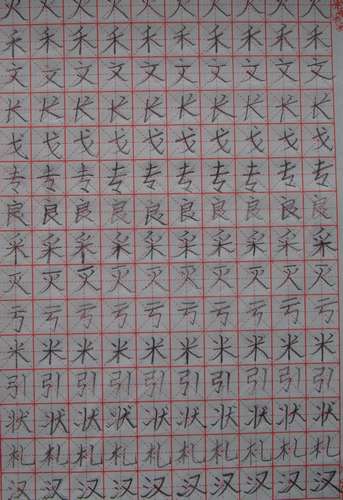 禾禾禾禾禾禾禾禾禾禾
文文文文文文文文文文
长长长长长长长长长长
戈戈戈戈戈戈戈戈戈戈
专专专专专专专专专专
良良良良良良良良良良
采采采采采采采采采采
灭灭灭灭灭灭灭灭灭灭
亏亏亏亏亏亏亏亏亏亏
米米米米米米米米米米
引引引引引引引引引引
状状状状状状状状状状
札札札札札札札札札札
汉汉汉汉汉汉汉汉汉汉